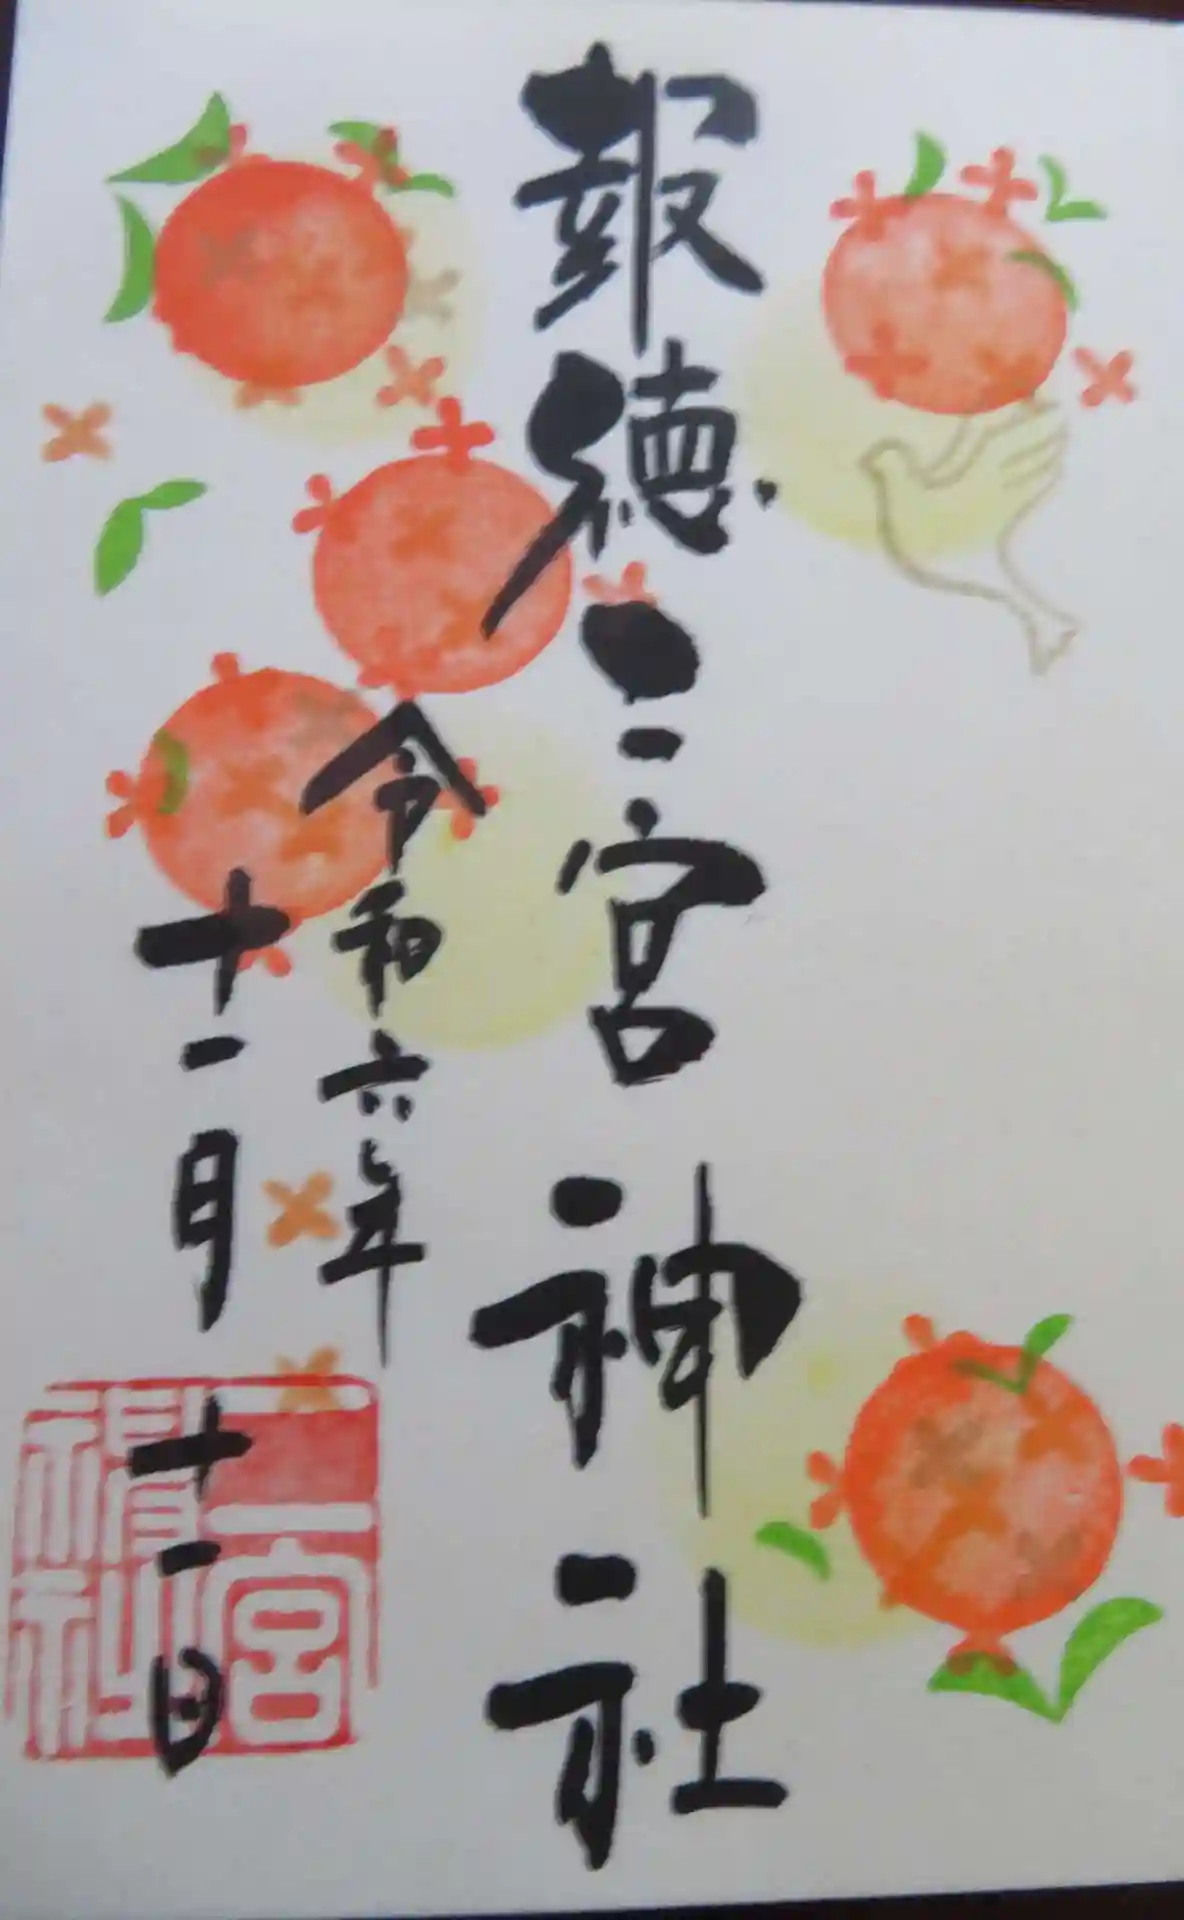 報徳二宮神社
令和六年
十一月十一日
二宮神社